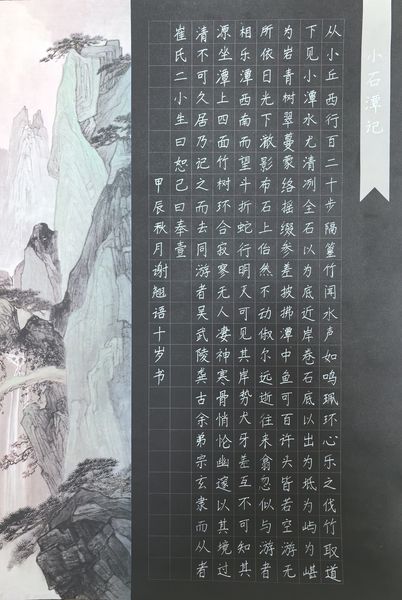 小石潭记
从小丘西行百二十步隔篁竹闻水声如鸣珮环心乐之伐竹取道
下见小潭水尤清冽全石以为底近岸卷石底以出为坻为屿为嵁
为岩青树翠蔓蒙络摇缀参差披拂潭中鱼可百许头皆若空游无
所依日光下澈影布石上佁然不动俶尔远逝往来翕忽似与游者
相乐潭西南而望斗折蛇行明灭可见其岸势犬牙差互不可知其
源坐潭上四面竹树环合寂寥无人凄神寒骨悄怆幽邃以其境过
清不可久居乃记之而去同游者吴武陵龚古余弟宗玄隶而从者
崔氏二小生曰恕己曰奉壹
甲辰秋月谢翘语十岁书